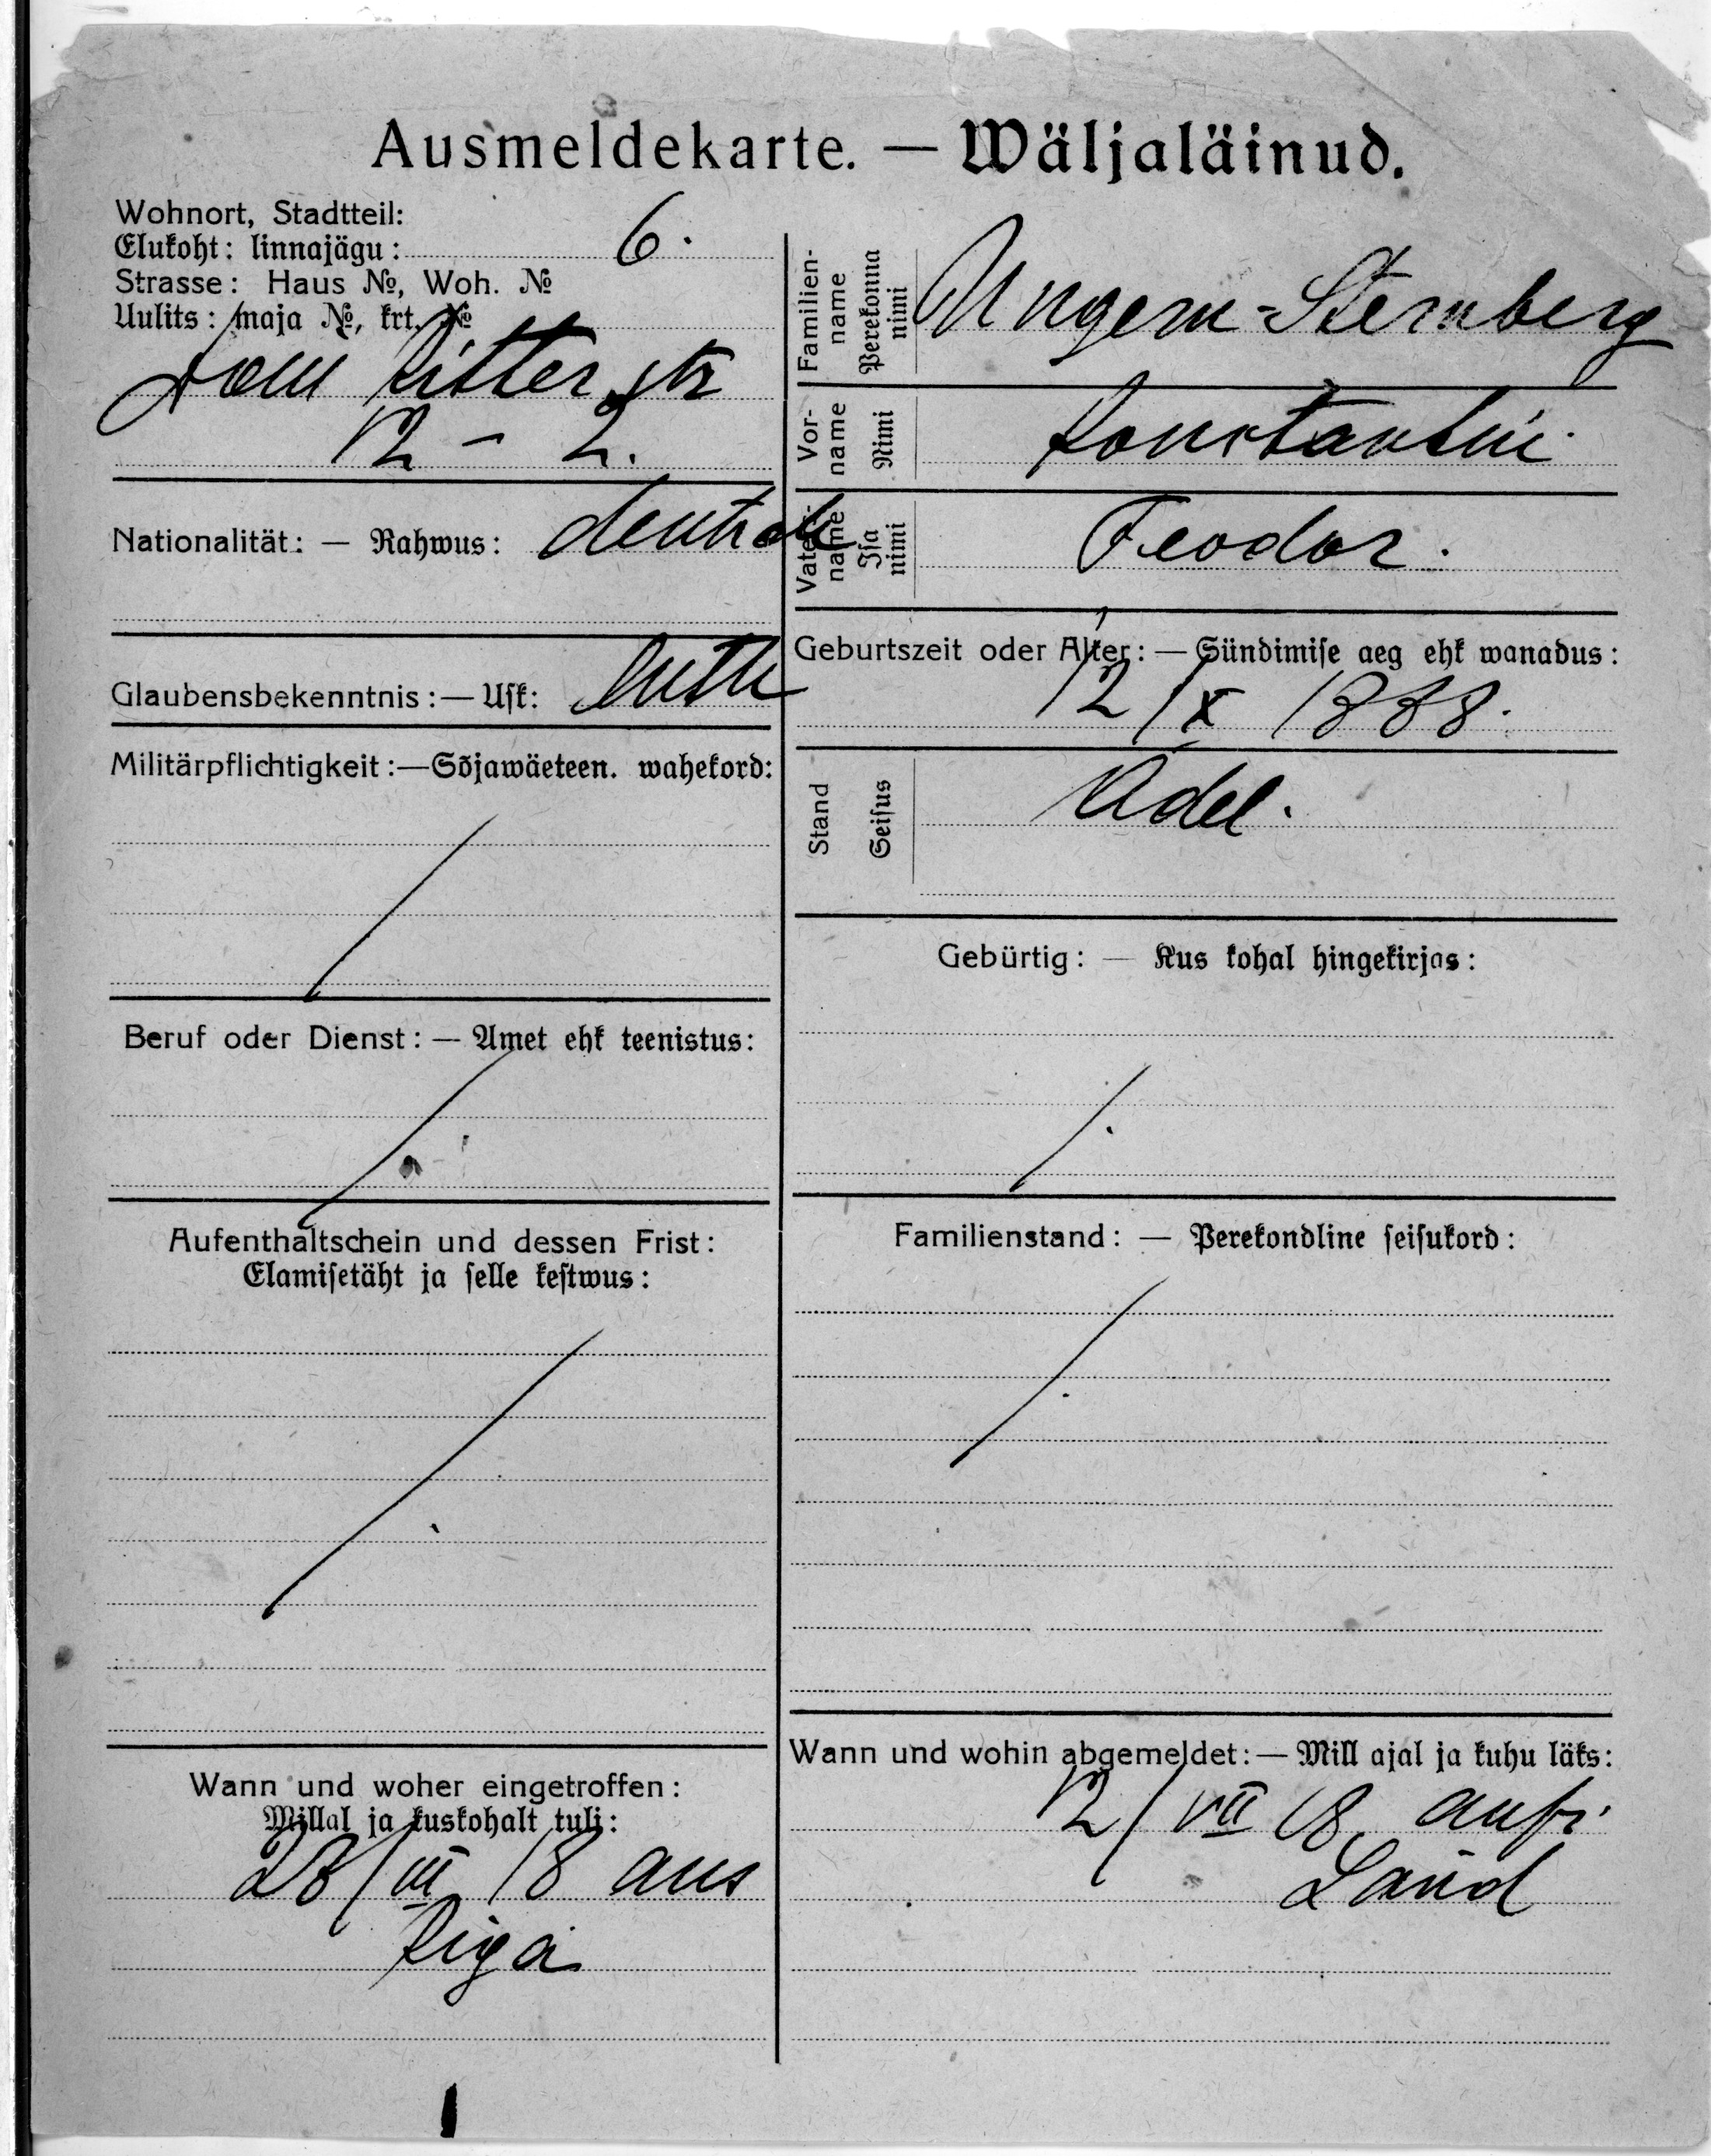 Ausmeldekarte. — Wäljaläinud.
Wohnort, Stadtteil:
Elukoht: linnajägu: 6.
Strasse: Haus №, Woh. №
Uulits: maja №, krt. №
Dom Ritter str
12 - 2.
Nationalität: — Rahwus: deutsch
Glaubensbekenntnis: — Usk: luth
Militärpflichtigkeit: — Sõjawäeteen. wahekord:
Beruf oder Dienst: — Amet ehk teenistus:
Aufenthaltschein und dessen Frist:
Elamisetäht ja selle kestwus:
Wann und woher eingetroffen:
Millal ja kuskohalt tuli:
28/III 18 aus
Riga
Familien-
name
Perekonna
nimi
Ungern-Sternberg
Vor-
name
Nimi
Konstantin
Vater-
name
Isa
nimi
Feodor.
Geburtszeit oder Alter: — Sündimise aeg ehk wanadus:
12/X 1888.
Stand
Seisus
Adel.
Gebürtig: — Kus kohal hingekirjas:
Familienstand: — Perekondline seisukord:
Wann und wohin abgemeldet: — Mill ajal ja kuhu läks:
12/VII 18 aufs
Land